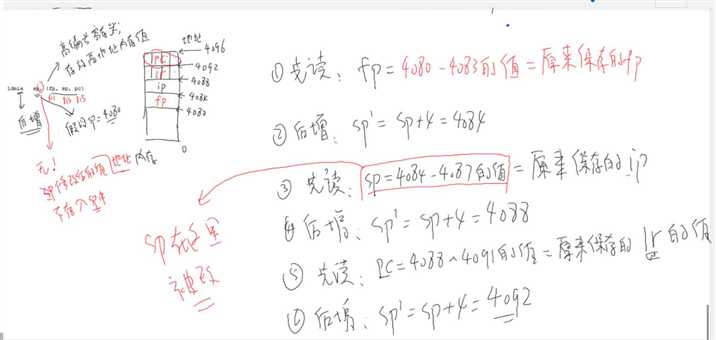 高编号寄存器
存的高地址内存值
后增
假设SP=4080
无!
地址
pc
lr
ip
fp
4096
4092
4088
4084
4080
0
① 先读: fp=4080-4083的值=原来保存的fp
② 后增: sp'=sp+4=4084
③ 先读: sp=4084-4087的值=原来保存的ip
④ 后增: sp'=sp+4=4088
⑤ 先读: PC=4088~4091的值=原来保存的lr的值
⑥ 后增: sp'=sp+4=4092
sp在这里
被改